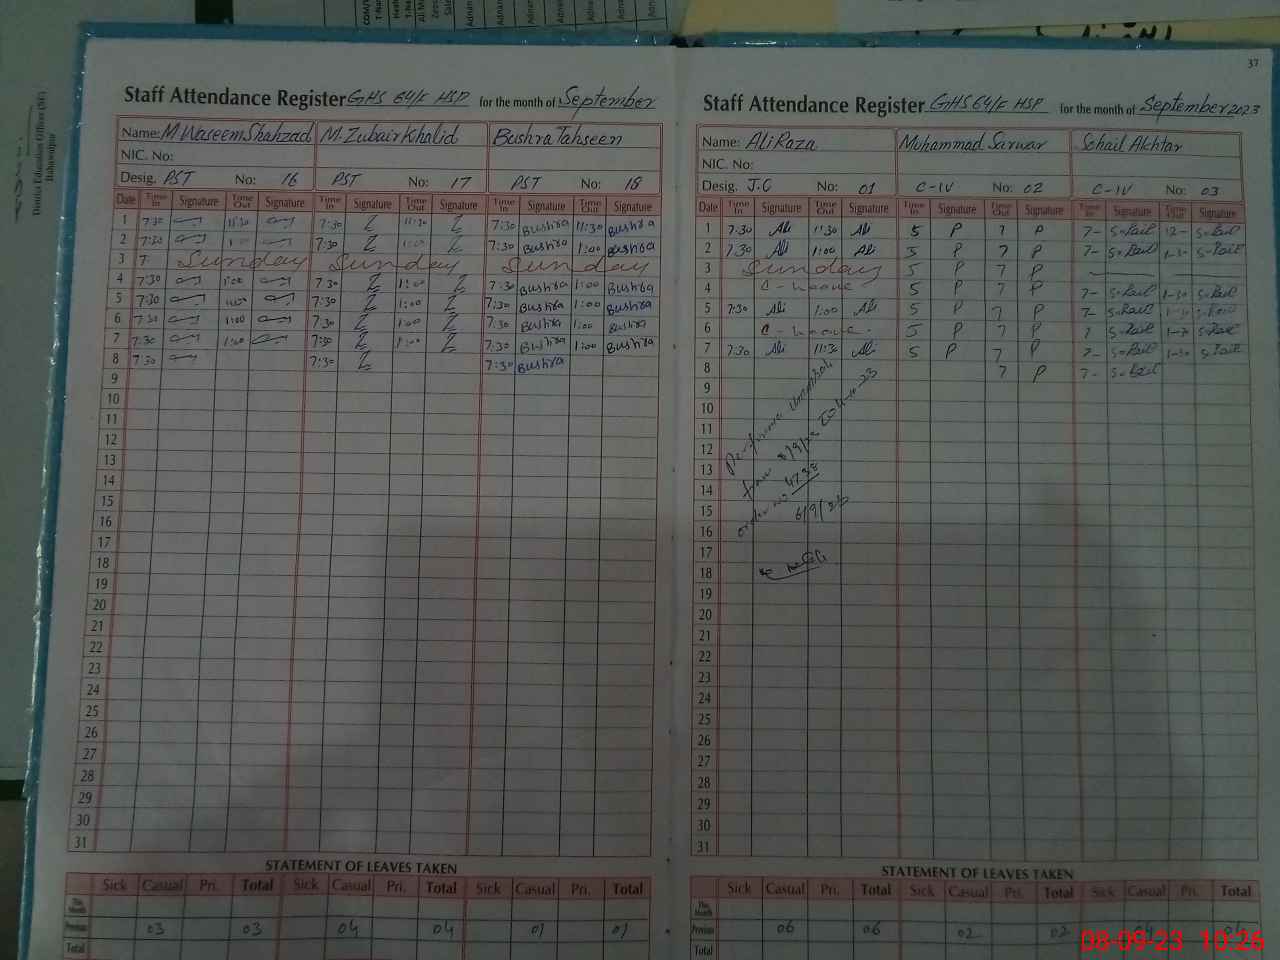 District Education Officer (SE)
Bahawalpur
37
Staff Attendance Register GHS 64/F HSP for the month of September
Name: M. Waseem Shahzad M. Zubair Khalid Bushra Tahseen
NIC. No:
Desig. PST No: 16 PST No: 17 PST No: 18
Date Time In Signature Time Out Signature Time In Signature Time Out Signature Time In Signature Time Out Signature
1 7:30 11:30 7:30 Z 11:30 Z 7:30 Bushra 11:30 Bushra
2 7:30 1:00 7:30 Z 1:00 Z 7:30 Bushra 1:00 Bushra
3 7- Sunday Sunday Sunday
4 7:30 1:00 7:30 Z 1:00 Z 7:30 Bushra 1:00 Bushra
5 7:30 1:00 7:30 Z 1:00 Z 7:30 Bushra 1:00 Bushra
6 7:30 1:00 7:30 Z 1:00 Z 7:30 Bushra 1:00 Bushra
7 7:30 1:00 7:30 Z 1:00 Z 7:30 Bushra 1:00 Bushra
8 7:30 7:30 Z 7:30 Bushra
9
10
11
12
13
14
15
16
17
18
19
20
21
22
23
24
25
26
27
28
29
30
31
STATEMENT OF LEAVES TAKEN
Sick Casual Pri. Total Sick Casual Pri. Total Sick Casual Pri. Total
This Month
Previous 03 03 04 04 01 01
Total
Staff Attendance Register GHS 64/F HSP for the month of September 2023
Name: Ali Raza Muhammad Sarwar Sohail Akhtar
NIC. No:
Desig. J.C No: 01 C-IV No: 02 C-IV No: 03
Date Time In Signature Time Out Signature Time In Signature Time Out Signature Time In Signature Time Out Signature
1 7:30 Ali 11:30 Ali 5 P 7 P 7- S.Rail 12- S.Rail
2 7:30 Ali 1:00 Ali 5 P 7 P 7- S.Rail 1-30 S.Rail
3 Sunday 5 P 7 P
4 5 P 7 P 7- S.Rail 1-30 S.Rail
5 7:30 Ali 1:00 Ali 5 P 7 P 7- S.Rail 1-30 S.Rail
6 5 P 7 P 7 S.Rail 1-30 S.Rail
7 7:30 Ali 11:30 Ali 5 P 7 P 7- S.Rail 1-30 S.Rail
8 7 P 7- S.Rail
9
10
11
12
13
14
15
16
17
18
19
20
21
22
23
24
25
26
27
28
29
30
31
from 8/9/23
order no 4738
6/9/23
STATEMENT OF LEAVES TAKEN
Sick Casual Pri. Total Sick Casual Pri. Total Sick Casual Pri. Total
This Month
Previous 06 06 02 02
Total
08-09-23 10:26